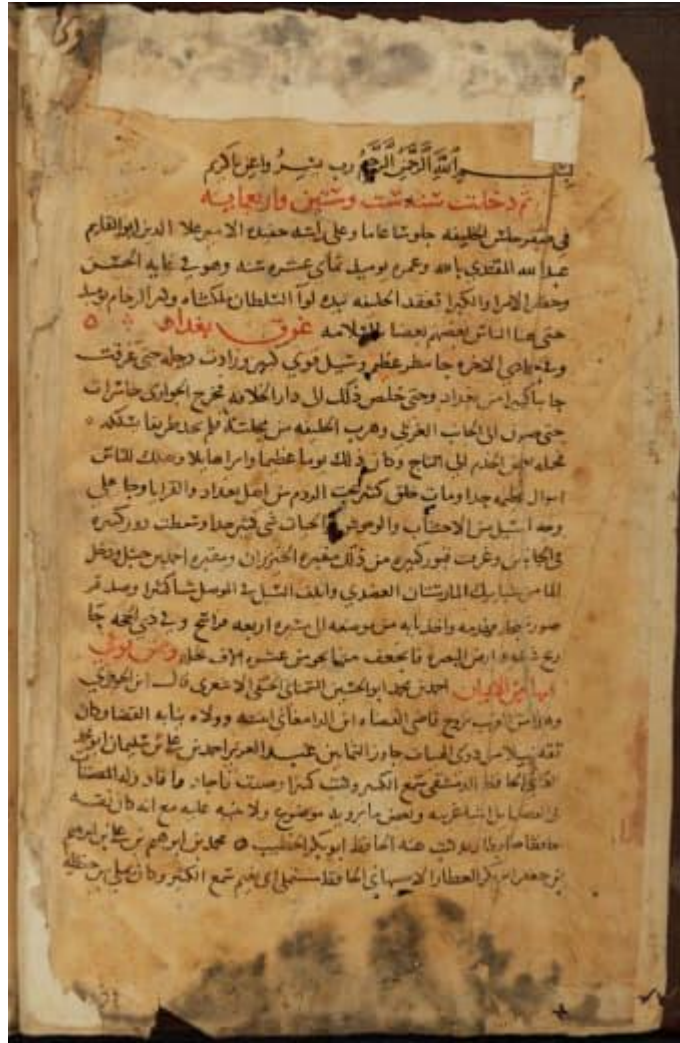 بسم الله الرحمن الرحيم رب يسر واعن يا كريم
ثم دخلت سنه ست وستين واربعمايه
في صفر جلس الخليفه جلوسا عاما وعلى راسه حفيده الامير علا الدين ابو القاسم
عبد الله المقتدي بالله وعمره يوميد ثماني عشره سنه وهو في غايه الحسن
وحضر الامرا والكبرا فعقد الخليفه بيده لوآ السلطان ملكشاه وكثر الزحام يوميد
حتى هنا الناس بعضهم بعضا بالسلامه غرق بغداد
وفي جمادى الاخره جا مطر عظيم وسيل قوي كثير وزادت دجله حتى غرقت
جانبا كبيرا من بغداد وحتى خلص ذلك الى دار الخلافه فخرج الجوارى حاسرات
حتى صرن الى الجانب الغربى وهرب الخليفه من مجلسه فلم يجد طريقا يسلكه
فحمله بعض الخدم الى التاج وكان ذلك يوما عظيما وامرا هايلا وهلك للناس
اموال عظيمه جدا ومات خلق كثير تحت الردم من اهل بغداد والقرايا وجا على
وجه السيل من الاخشاب والوحوش والحيات شى كثير جدا وسقطت دور كثيره
فى الجانبين وغرقت قبور كثيره من ذلك مقبره الخيزران ومقبره احمد بن حنبل ودخل
الما من شبابيك المارستان العضدي واتلف السيل فى الموصل شيا كثيرا وصدم
سور سنجار فهدمه واخذ بابه من موضعه الى مسيره اربعه فراسخ وفي ذى الحجه جا
ريح شديده ارض البصره فانجعف منها نحو من عشره الاف نخله وممن توفي
فيها من الاعيان احمد بن محمد ابو الحسين السمناى الحنفى الاشعرى قال ابن الجوزي
وهذا من الغريب تزوج قاضى القضاه ابن الدامغانى ابنته وولاه نيابه القضا وكان
ثقه نبيلا من ذوى الهيات عبد العزيز احمد بن على بن سليمان ابو محمد
الحافظ الدمشقى سمع الكثير
الحافظ ابو بكر الخطيب محمد بن ابرهيم بن على بن ابرهيم
بن جعفر ابو بكر العطار الاصبهانى الحافظ مستملى ابى نعيم سمع الكثير وكان يملى من حفظه